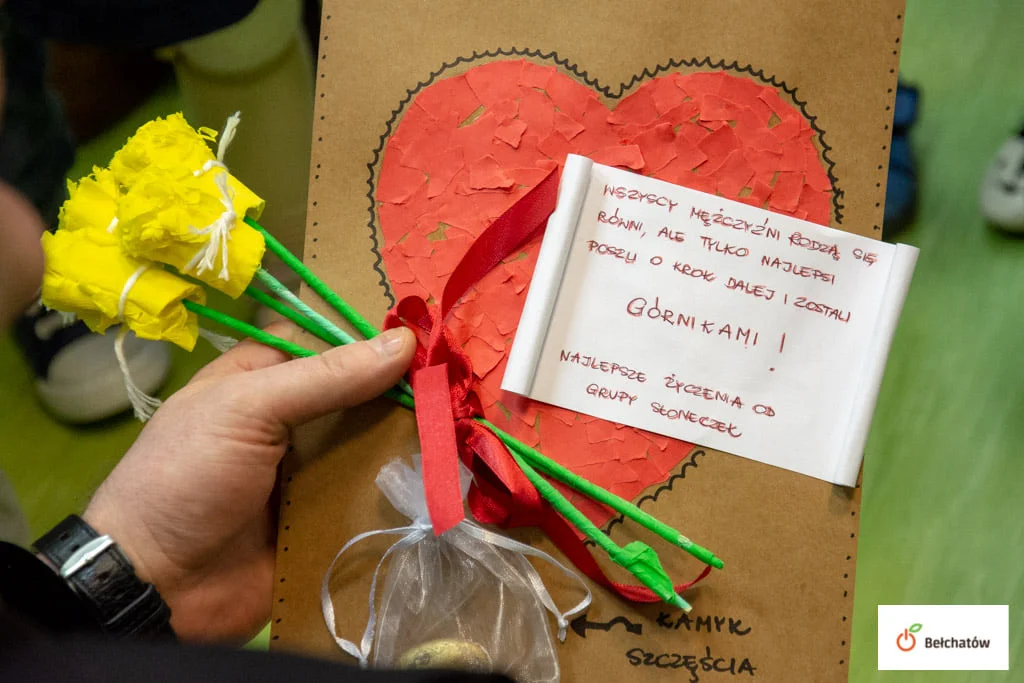 WSZYSCY MĘŻCZYŹNI RODZĄ SIĘ
RÓWNI, ALE TYLKO NAJLEPSI
POSZLI O KROK DALEJ I ZOSTALI
GÓRNIKAMI !
NAJLEPSZE ŻYCZENIA OD
GRUPY SŁONECZEK
KAMYK
SZCZĘŚCIA
Bełchatów